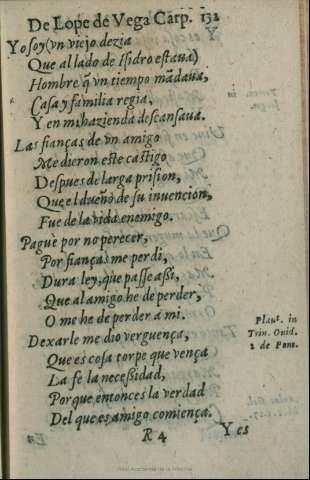 De Lope de Vega Carp. 132
Yo soy (vn viejo dezia
Que al lado de Isidro estaua)
Hombre q̃ vn tiempo mãdaua,
Casa y familia regia,
Y en mi hazienda descansaua.
Las fianças de vn amigo
Me dieron este castigo
Despues de larga prision,
Que el dueño de su inuencion,
Fue de la vida enemigo.
Paguè por no perecer,
Por fianças me perdi,
Dura ley, que passe assi,
Que al amigo he de perder,
O me he de perder a mi.
Dexarle me dio verguença,
Plaut. in
Trin. Ouid.
2 de Pont.
Que es cosa torpe que vença
La fe la necessidad,
Porque entonces la verdad
Del que es amigo comiença.
R 4
Y es